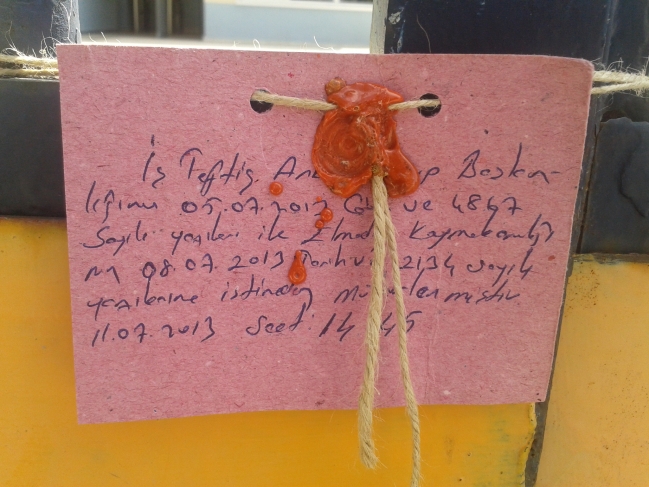 İş Teftiş Başkan-
lığının 05.07.2013 ve 4847
Sayılı yazıları ile Elmadağ Kaymakamlığı
nın 08.07.2013 Tarih ve 2134 sayılı
yazılarına istinaden Mühürlenmiştir
11.07.2013 Saat: 14 45